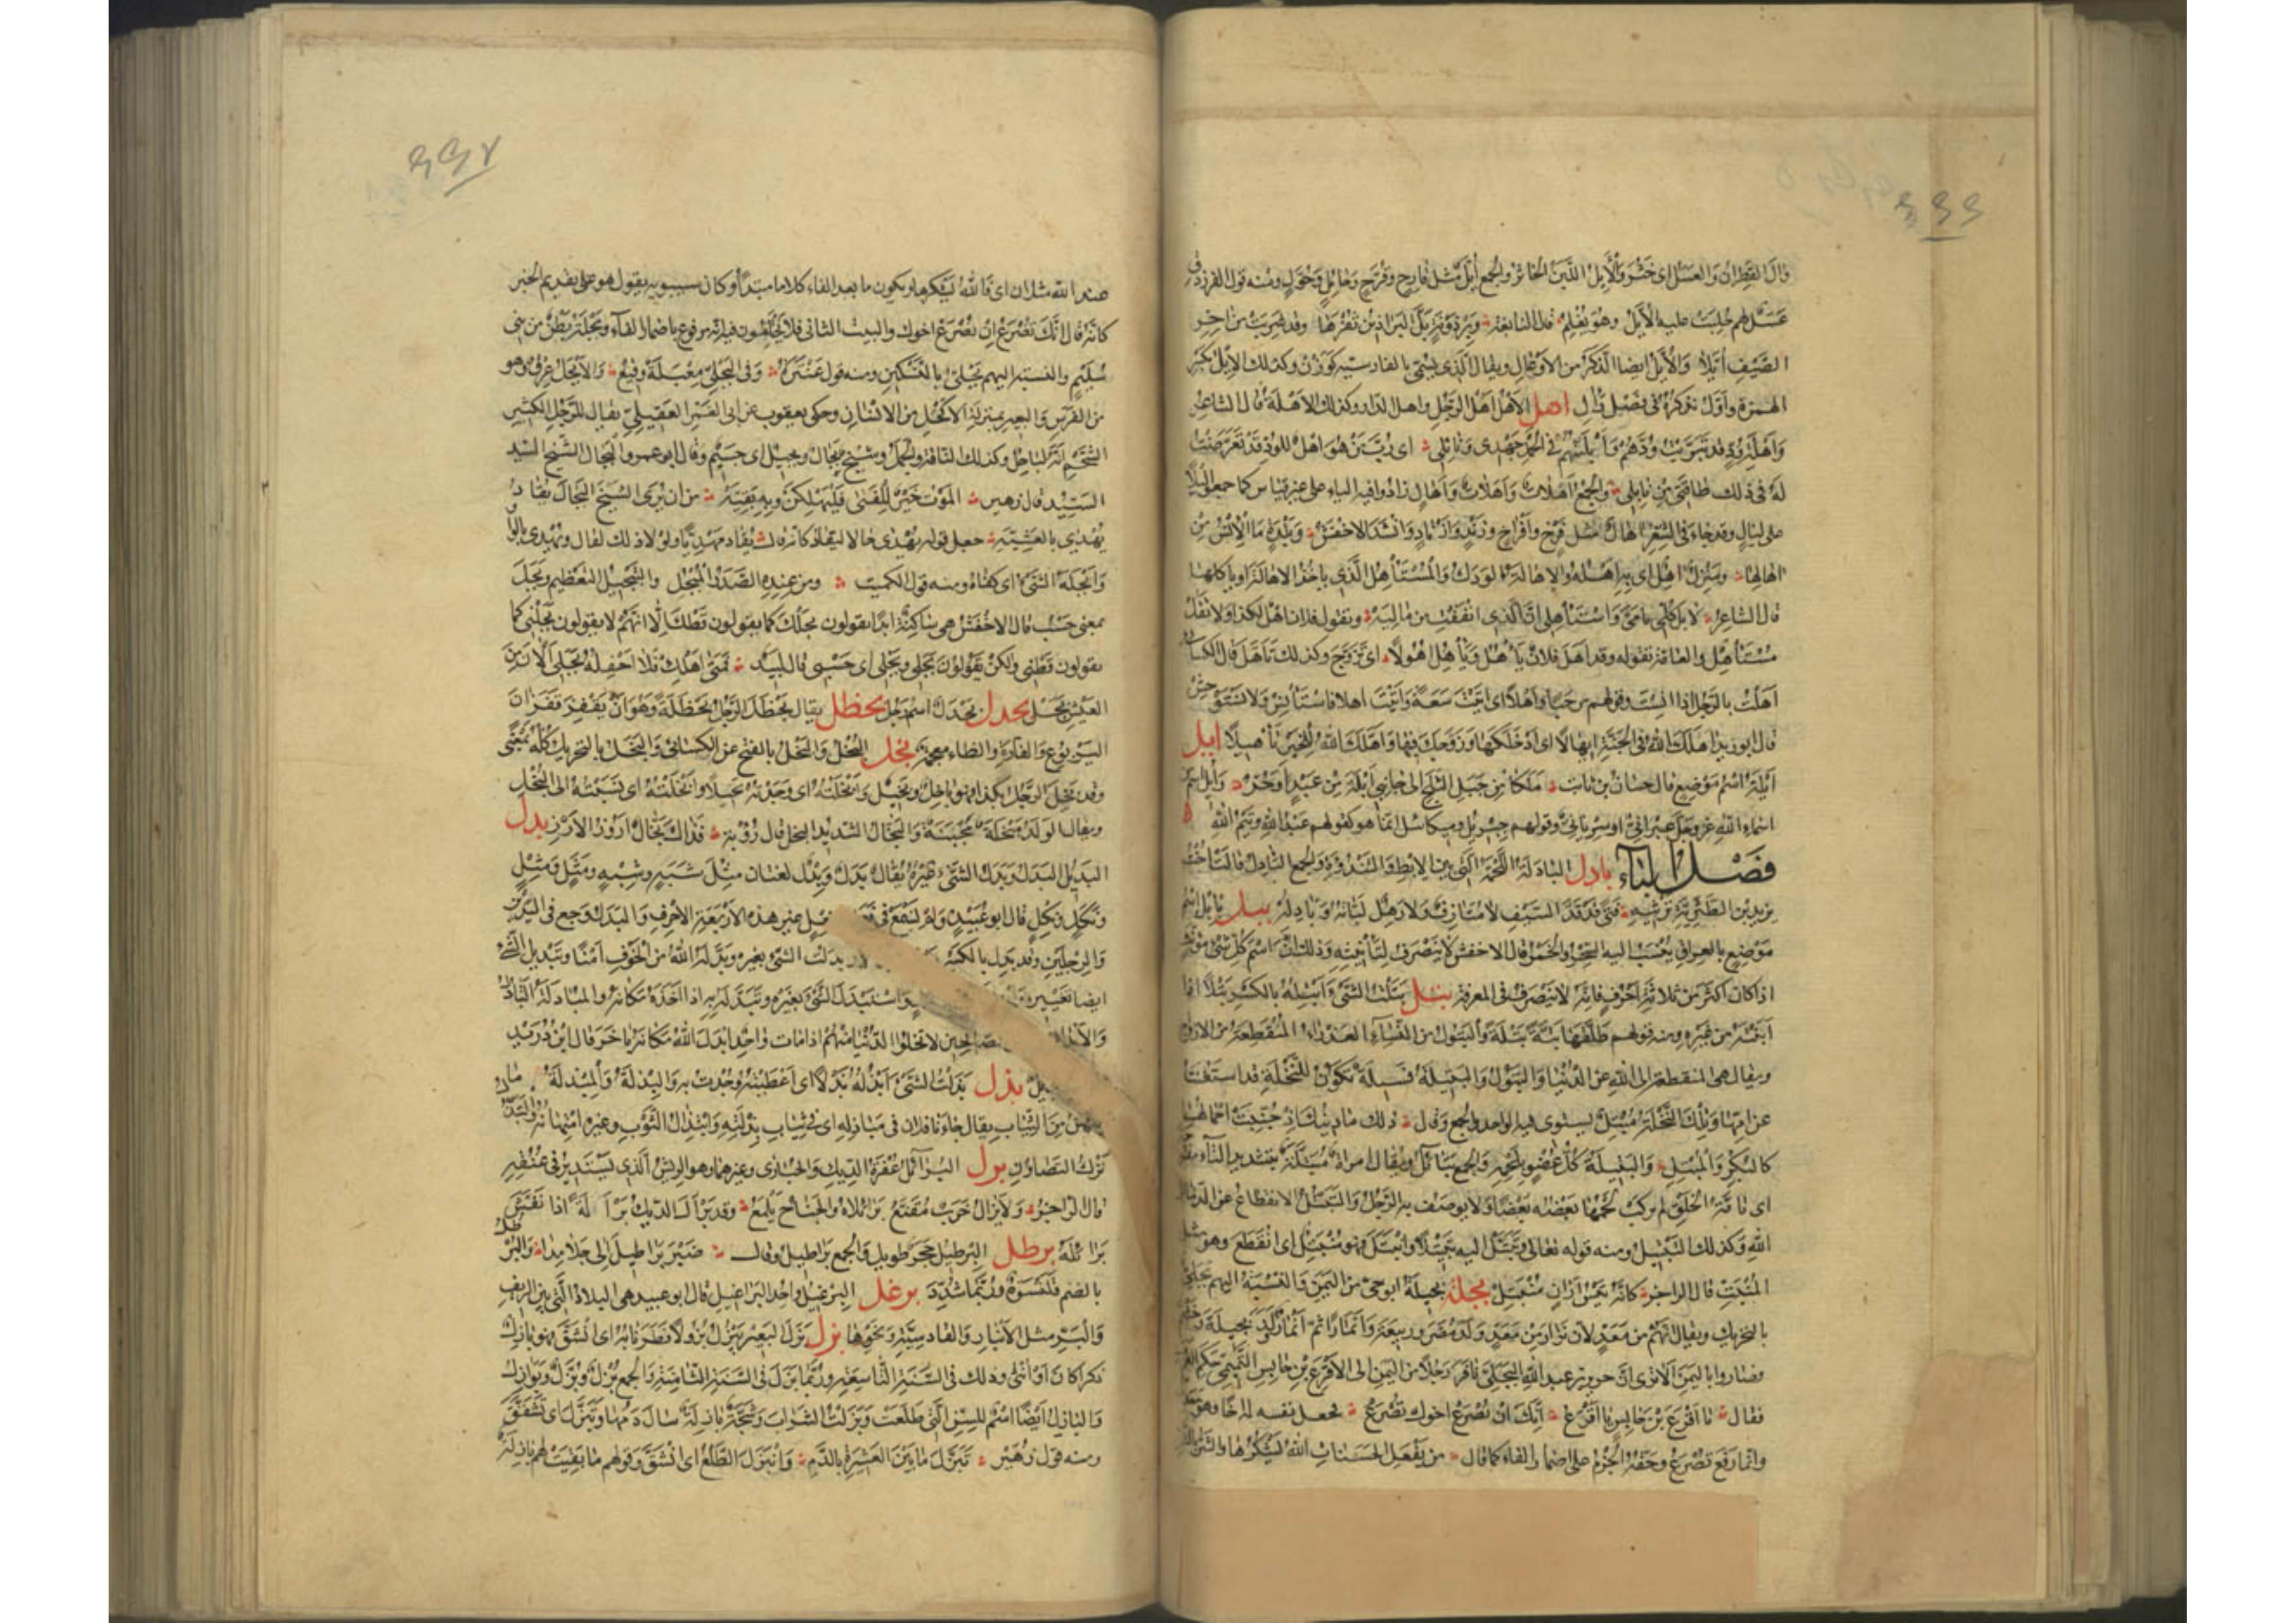 قال القطران والعسل اى خثر والأيل اللبن الخاثر والجمع أيل مثل قارح وقرح وحائل وحول ومنه قول الفرزدق
الصيف أيلا والأيل ايضا الذكر من الاوعال ويقال الذى يسمى بالفارسية كوزن وكذلك الايل بكسر
الهمزة وأول نذكره فى فصل وأل اهل الاهل اهل الرجل واهل الدار وكذلك الاهلة قال الشاعر
وأهلة ود قد تبريت ودهم وأبليتهم فى الحمد جهدى ونايلى اى رب من هو اهل للود قد تعرضت
له فى ذلك طاقتى من نايلى والجمع اهلات وأهلات وأهال زادوا فيه الياء على غير قياس كما جمعوا ليلا
على ليال وقد جاء فى الشعر اهال مثل فرخ وافراخ وزند وازناد وانشد الاخفش وبلدة ما الانس من
اهالها ومنزل اهل اى به اهله والاهالة الودك والمستأهل الذى ياخذ الاهالة او ياكلها
قال الشاعر لا بل كلى يا مى واستأهلى ان الذى انفقت من ماليه وتقول فلان اهل لكذا ولا تقل
مستأهل والعامة تقوله وقد اهل فلان يأهل ويأهل اهولا اى تزوج وكذلك تأهل قال الكسائى
أهلت بالرجل اذا انست به وقولهم مرحبا وأهلا اى اتيت سعة وأتيت اهلا فاستأنس ولا تستوحش
قال ابو زيد آهلك الله فى الجنة ايهالا اى ادخلكها وزوجك فيها وأهلك الله للخير تأهيلا ايل
أيلة اسم موضع قال حسان بن ثابت ملكا من جبل الثلج الى جانبى أيلة من عبد وحر وايل اسم
اسماء الله عز وجل عبرانى او سريانى وقولهم جبريل وميكائيل انما هو كقولهم عبد الله وتيم الله
فصل الباء بادل البادلة اللحمة التى بين الابط والثندوة والجمع البادل قالت اخت
يزيد بن الطثرية ترثيه فتى قد قد السيف لا متازف ولا رهل لباته وبادله ببل بابل اسم
موضع بالعراق ينسب اليه السحر والخمر قال الاخفش لا ينصرف لتأنيثه وذلك ان اسم كل شىء مؤنث
اذا كان اكثر من ثلاثة احرف فانه لا ينصرف فى المعرفة بتل بتلت الشىء أبتله بالكسر بتلا اذا
أبنته من غيره ومنه قولهم طلقها بتة بتلة والبتول من النساء العذراء المنقطعة من الازواج
ويقال هى المنقطعة الى الله عن الدنيا والبتول والبتيلة فسيلة تكون للنخلة قد استغنت
عن امها وتلك النخلة مبتل يستوى فيه الواحد والجمع وقال ذلك ما دينك اذ جنبت احمالها
كالبكر المبتل والبتيلة كل عضو بلحمه والجمع بتائل ويقال امراة مبتلة بتشديد التاء مفتوحة
اى تامة الخلق لم يركب لحمها بعضه بعضا ولا يوصف به الرجل والتبتل الانقطاع عن الدنيا الى
الله وكذلك التبتيل ومنه قوله تعالى وتبتل اليه تبتيلا وانبتل فهو منبتل اى انقطع وهو مثل
المنبت قال الراجز كانه تيس اران منبتل بجلة بجيلة ابو حى من اليمن والنسبة اليهم بجلى
بالتحريك ويقال انهم من معد لان نزار بن معد ولد مضر وربيعة وانمارا ثم انمار ولد بجيلة وخثعم
وصاروا باليمن الا ترى ان جرير بن عبد الله البجلى نافر رجلا من اليمن الى الاقرع بن حابس التميمى حكم العرب
فقال يا اقرع بن حابس يا اقرع انك ان يصرع اخوك تصرع فجعل نفسه له اخا وهو معدى
وانما رفع تصرع وحقه الجزم على اضمار الفاء كما قال من يفعل الحسنات الله يشكرها والشر بالشر
عند الله مثلان اى فالله يشكرها ويكون ما بعد الفاء كلاما مبتدأ وكان سيبويه يقول هو على تقديم الخبر
كانه قال انك تصرع ان يصرع اخوك والبيت الثانى فلا يختلفون فيه انه مرفوع باضمار الفاء وبجلة بطن من بنى
سليم والنسبة اليهم بجلى بالتسكين ومنه قول عنترة وفى البجلى معبلة وقيع والابجل عرق وهو
من الفرس والبعير بمنزلة الاكحل من الانسان وحكى يعقوب عن ابى الغمر العقيلى يقال للرجل الكثير
الشحم انه لباجل وكذلك الناقة والجمل وشيخ بجال وبجيل اى جسيم وقال ابو عمرو البجال الشيخ السيد
السيد قال زهير الموت خير للفتى فليهلكن وبه بقية من ان يرى الشيخ البجال يقاد
يهدى بالعشية جعل قوله يهدى حالا ليقاد كانه قال يقاد مهديا ولولا ذلك لقال ويهدى بالواو
وابجله الشىء اى كفاه ومنه قول الكميت ومن عنده الصدر المبجل والتبجيل التعظيم وبجل
بمعنى حسب قال الاخفش هى ساكنة ابدا يقولون بجلك كما يقولون قطك الا انهم لا يقولون بجلنى كما
يقولون قطنى ولكن يقولون بجلى وبجلى اى حسبى قال لبيد فمتى اهلك فلا احفله بجلى الان من
العيش بجل بحدل بحدل اسم رجل بحظل يقال بحظل الرجل بحظلة وهو ان يقفز قفزان
اليربوع والفارة والظاء معجمة بخل البخل والبخل بالفتح عن الكسائى والبخل بالتحريك كله بمعنى
وقد بخل الرجل بكذا فهو باخل وبخيل وابخلته اى وجدته بخيلا وبخلته اى نسبته الى البخل
ويقال الولد مبخلة مجبنة والبخال الشديد البخل قال رؤبة فذاك بخال اروز الارز بدل
البديل البدل وبدل الشىء غيره يقال بدل وبدل لغتان مثل شبه وشبه ومثل ومثل
ونكل ونكل قال ابو عبيد ولم يسمع فى غير هذه الاربعة الاحرف والبدل وجع فى اليدين
والرجلين وقد بدل بالكسر بدلت الشىء بغيره وبدله الله من الخوف امنا وتبديل الشىء
ايضا تغييره واستبدل الشىء بغيره وتبدله به اذا اخذه مكانه والمبادلة التبادل
الصالحين لا تخلوا الدنيا منهم اذا مات واحد ابدل الله مكانه باخر قال ابن دريد
بذل بذلت الشىء ابذله بذلا اى اعطيته وجدت به والبذلة والمبذلة ما
يمتهن من الثياب يقال جاءنا فلان فى مباذله اى فى ثياب بذلته وابتذال الثوب وغيره امتهانه والتبذل
ترك التصاون برل البرائل عفرة الديك والحبارى وغيرهما وهو الريش الذى يستدير فى عنقه
قال الراجز ولا يزال خرب مقنع برائلاه والجناح يلمع وقد برأل الديك برألة اذا نفش
برائله برطل البرطيل حجر طويل والجمع براطيل وقال ضبر براطيل الى جلامدا والبرطل
بالضم قلنسوة وربما شدد برغل البرغيل واحد البراغيل قال ابو عبيد هى البلاد التى بين الريف
والبر مثل الانبار والقادسية ونحوها بزل بزل البعير يبزل بزولا فطر نابه اى انشق فهو بازل
ذكرا كان او انثى وذلك فى السنة التاسعة وربما بزل فى السنة الثامنة والجمع بزل وبزل وبوازل
والبازل ايضا اسم للسن التى طلعت وبزلت الشراب وشجة بازلة سال دمها وتبزل اى تشقق
ومنه قول زهير تبزل ما بين العشيرة بالدم وانبزل الطلع اى انشق وقولهم ما بقيت لهم بازلة